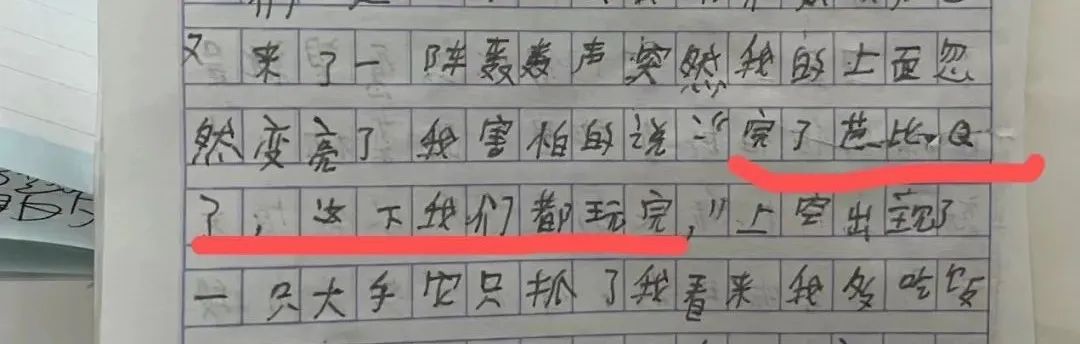 又来了一阵轰轰声突然我的上面忽
然变亮了我害怕的说:“完了芭比Q
了，这下我们都玩完，”上空出现了
一只大手它只抓了我看来我多吃饭